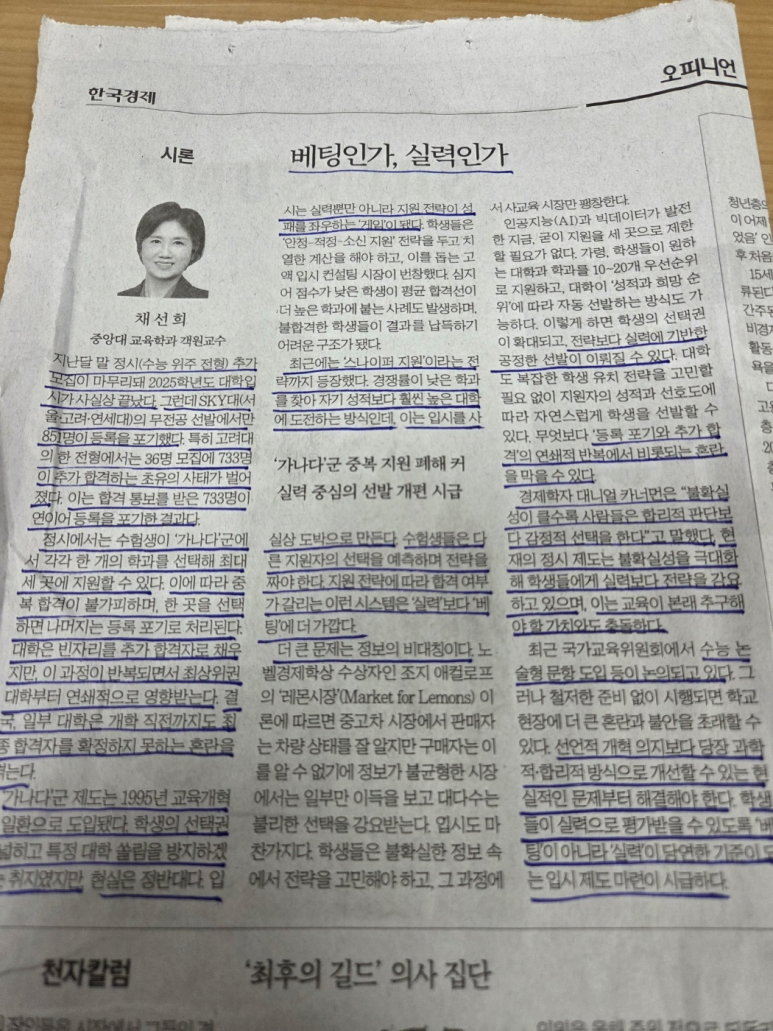 한국경제
오피니언
시론
베팅인가, 실력인가
채선희
중앙대 교육학과 객원교수
지난달 말 정시(수능 위주 전형) 추가
모집이 마무리돼 2025학년도 대학입
시가 사실상 끝났다. 그런데 SKY대(서
울·고려·연세대)의 무전공 선발에서만
851명이 등록을 포기했다. 특히 고려대
의 한 전형에서는 36명 모집에 733명
이 추가 합격하는 초유의 사태가 벌어
졌다. 이는 합격 통보를 받은 733명이
연이어 등록을 포기한 결과다.
정시에서는 수험생이 ‘가나다’군에
서 각각 한 개의 학과를 선택해 최대
세 곳에 지원할 수 있다. 이에 따라 중
복 합격이 불가피하며, 한 곳을 선택
하면 나머지는 등록 포기로 처리된다.
대학은 빈자리를 추가 합격자로 채우
지만, 이 과정이 반복되면서 최상위권
대학부터 연쇄적으로 영향받는다. 결
국, 일부 대학은 개학 직전까지도 최
종 합격자를 확정하지 못하는 혼란을
겪는다.
‘가나다’군 제도는 1995년 교육개혁
일환으로 도입됐다. 학생의 선택권
넓히고 특정 대학 쏠림을 방지하겠
는 취지였지만 현실은 정반대다. 입
시는 실력뿐만 아니라 지원 전략이 성
패를 좌우하는 ‘게임’이 됐다. 학생들은
‘안정·적정·소신 지원’ 전략을 두고 치
열한 계산을 해야 하고, 이를 돕는 고
액 입시 컨설팅 시장이 번창했다. 심지
어 점수가 낮은 학생이 평균 합격선이
더 높은 학과에 붙는 사례도 발생하며,
불합격한 학생들이 결과를 납득하기
어려운 구조가 됐다.
최근에는 ‘스나이퍼 지원’이라는 전
략까지 등장했다. 경쟁률이 낮은 학과
를 찾아 자기 성적보다 훨씬 높은 대학
에 도전하는 방식인데, 이는 입시를 사
‘가나다’군 중복 지원 폐해 커
실력 중심의 선발 개편 시급
실상 도박으로 만든다. 수험생들은 다
른 지원자의 선택을 예측하며 전략을
짜야 한다. 지원 전략에 따라 합격 여부
가 갈리는 이런 시스템은 ‘실력’보다 ‘베
팅’에 더 가깝다.
더 큰 문제는 정보의 비대칭이다. 노
벨경제학상 수상자인 조지 애컬로프
의 ‘레몬시장’(Market for Lemons) 이
론에 따르면 중고차 시장에서 판매자
는 차량 상태를 잘 알지만 구매자는 이
를 알 수 없기에 정보가 불균형한 시장
에서는 일부만 이득을 보고 대다수는
불리한 선택을 강요받는다. 입시도 마
찬가지다. 학생들은 불확실한 정보 속
에서 전략을 고민해야 하고, 그 과정에
서 사교육 시장만 팽창한다.
인공지능(AI)과 빅데이터가 발전
한 지금, 굳이 지원을 세 곳으로 제한
할 필요가 없다. 가령, 학생들이 원하
는 대학과 학과를 10~20개 우선순위
로 지원하고, 대학이 ‘성적과 희망 순
위’에 따라 자동 선발하는 방식도 가
능하다. 이렇게 하면 학생의 선택권
이 확대되고, 전략보다 실력에 기반한
공정한 선발이 이뤄질 수 있다. 대학
도 복잡한 학생 유치 전략을 고민할
필요 없이 지원자의 성적과 선호도에
따라 자연스럽게 학생을 선발할 수
있다. 무엇보다 ‘등록 포기와 추가 합
격’의 연쇄적 반복에서 비롯되는 혼란
을 막을 수 있다.
경제학자 대니얼 카너먼은 “불확실
성이 클수록 사람들은 합리적 판단보
다 감정적 선택을 한다”고 말했다. 현
재의 정시 제도는 불확실성을 극대화
해 학생들에게 실력보다 전략을 강요
하고 있으며, 이는 교육이 본래 추구해
야 할 가치와도 충돌한다.
최근 국가교육위원회에서 수능 논
술형 문항 도입 등이 논의되고 있다. 그
러나 철저한 준비 없이 시행되면 학교
현장에 더 큰 혼란과 불안을 초래할 수
있다. 선언적 개혁 의지보다 당장 과학
적·합리적 방식으로 개선할 수 있는 현
실적인 문제부터 해결해야 한다. 학생
들이 실력으로 평가받을 수 있도록 ‘베
팅’이 아니라 ‘실력’이 당연한 기준이 되
는 입시 제도 마련이 시급하다.
청년층의
이 어제
었음” 인
후 처음
15세
류된다
간주된
비경제
활동
육을
다
고용
층
20
천자칼럼
‘최후의 길드’ 의사 집단